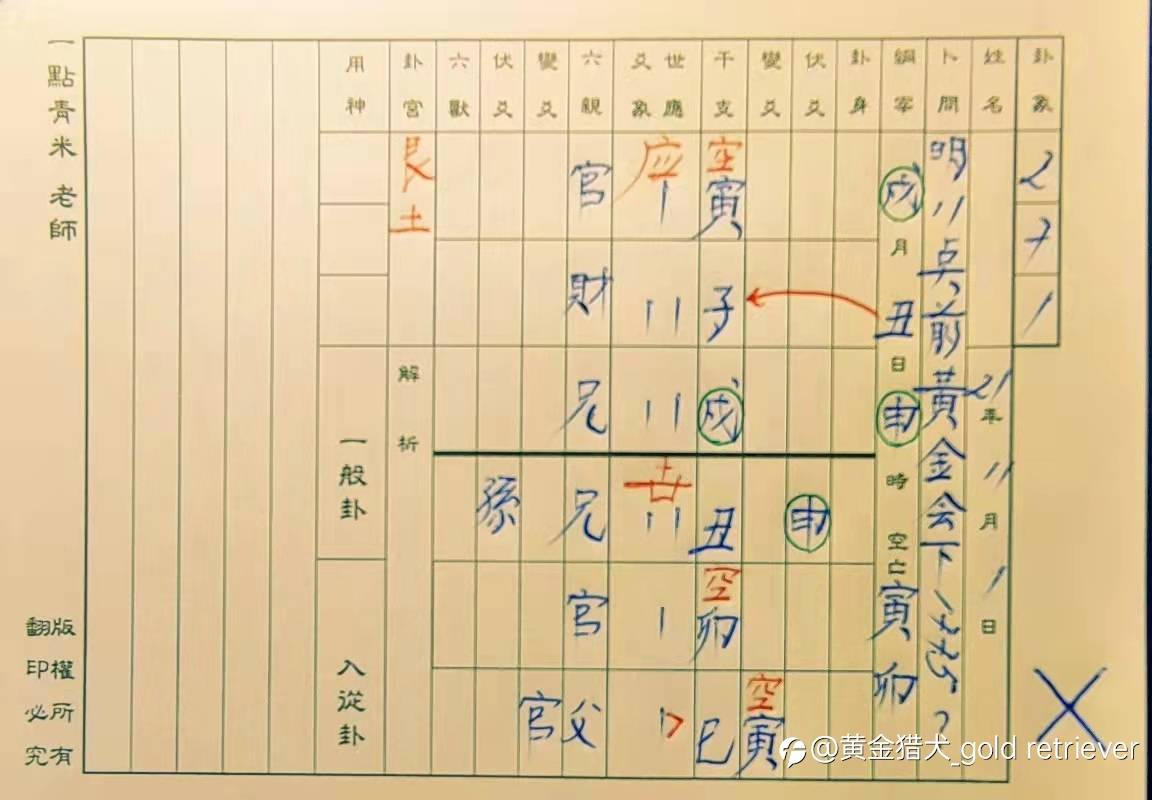 卦象 2 7 1
姓名 21年11月1日
卜問 明11点前黃金会下 ?
綱宰 戌月丑日申時空亡寅卯
卦身
伏爻 申
變爻 空寅
干支 空寅 子 戌 丑 空卯 巳
世應爻象 应 世
六親 官 財 兄 兄 官 父
變爻 官
伏爻 孫
六獸
卦宮 艮土
解析
用神
一般卦
入從卦
一點青米 老師
版權所有
翻印必究
@黄金猎犬_gold retriever